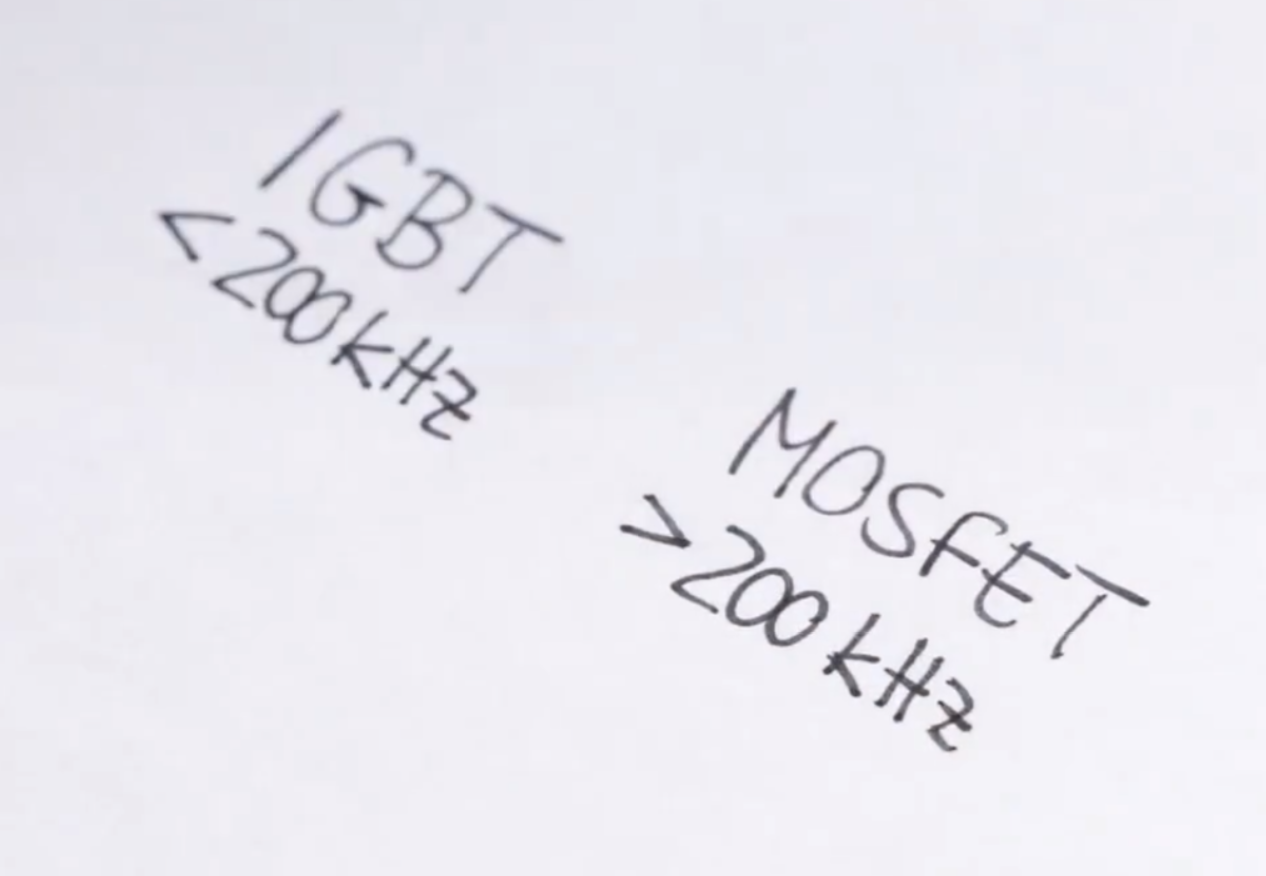 IGBT
<200kHz
MOSFET
>200 kHz